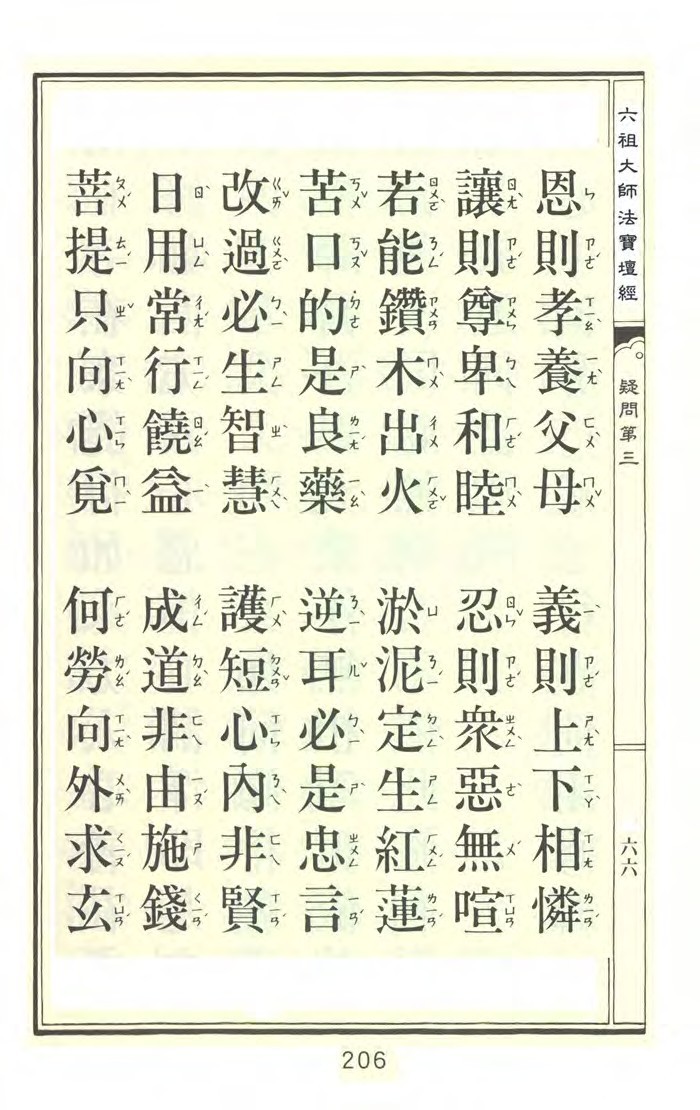 六祖大師法寶壇經
疑問第三
六六
恩則孝養父母 義則上下相憐
讓則尊卑和睦 忍則眾惡無喧
若能鑽木出火 淤泥定生紅蓮
苦口的是良藥 逆耳必是忠言
改過必生智慧 護短心內非賢
日用常行饒益 成道非由施錢
菩提只向心覓 何勞向外求玄
206